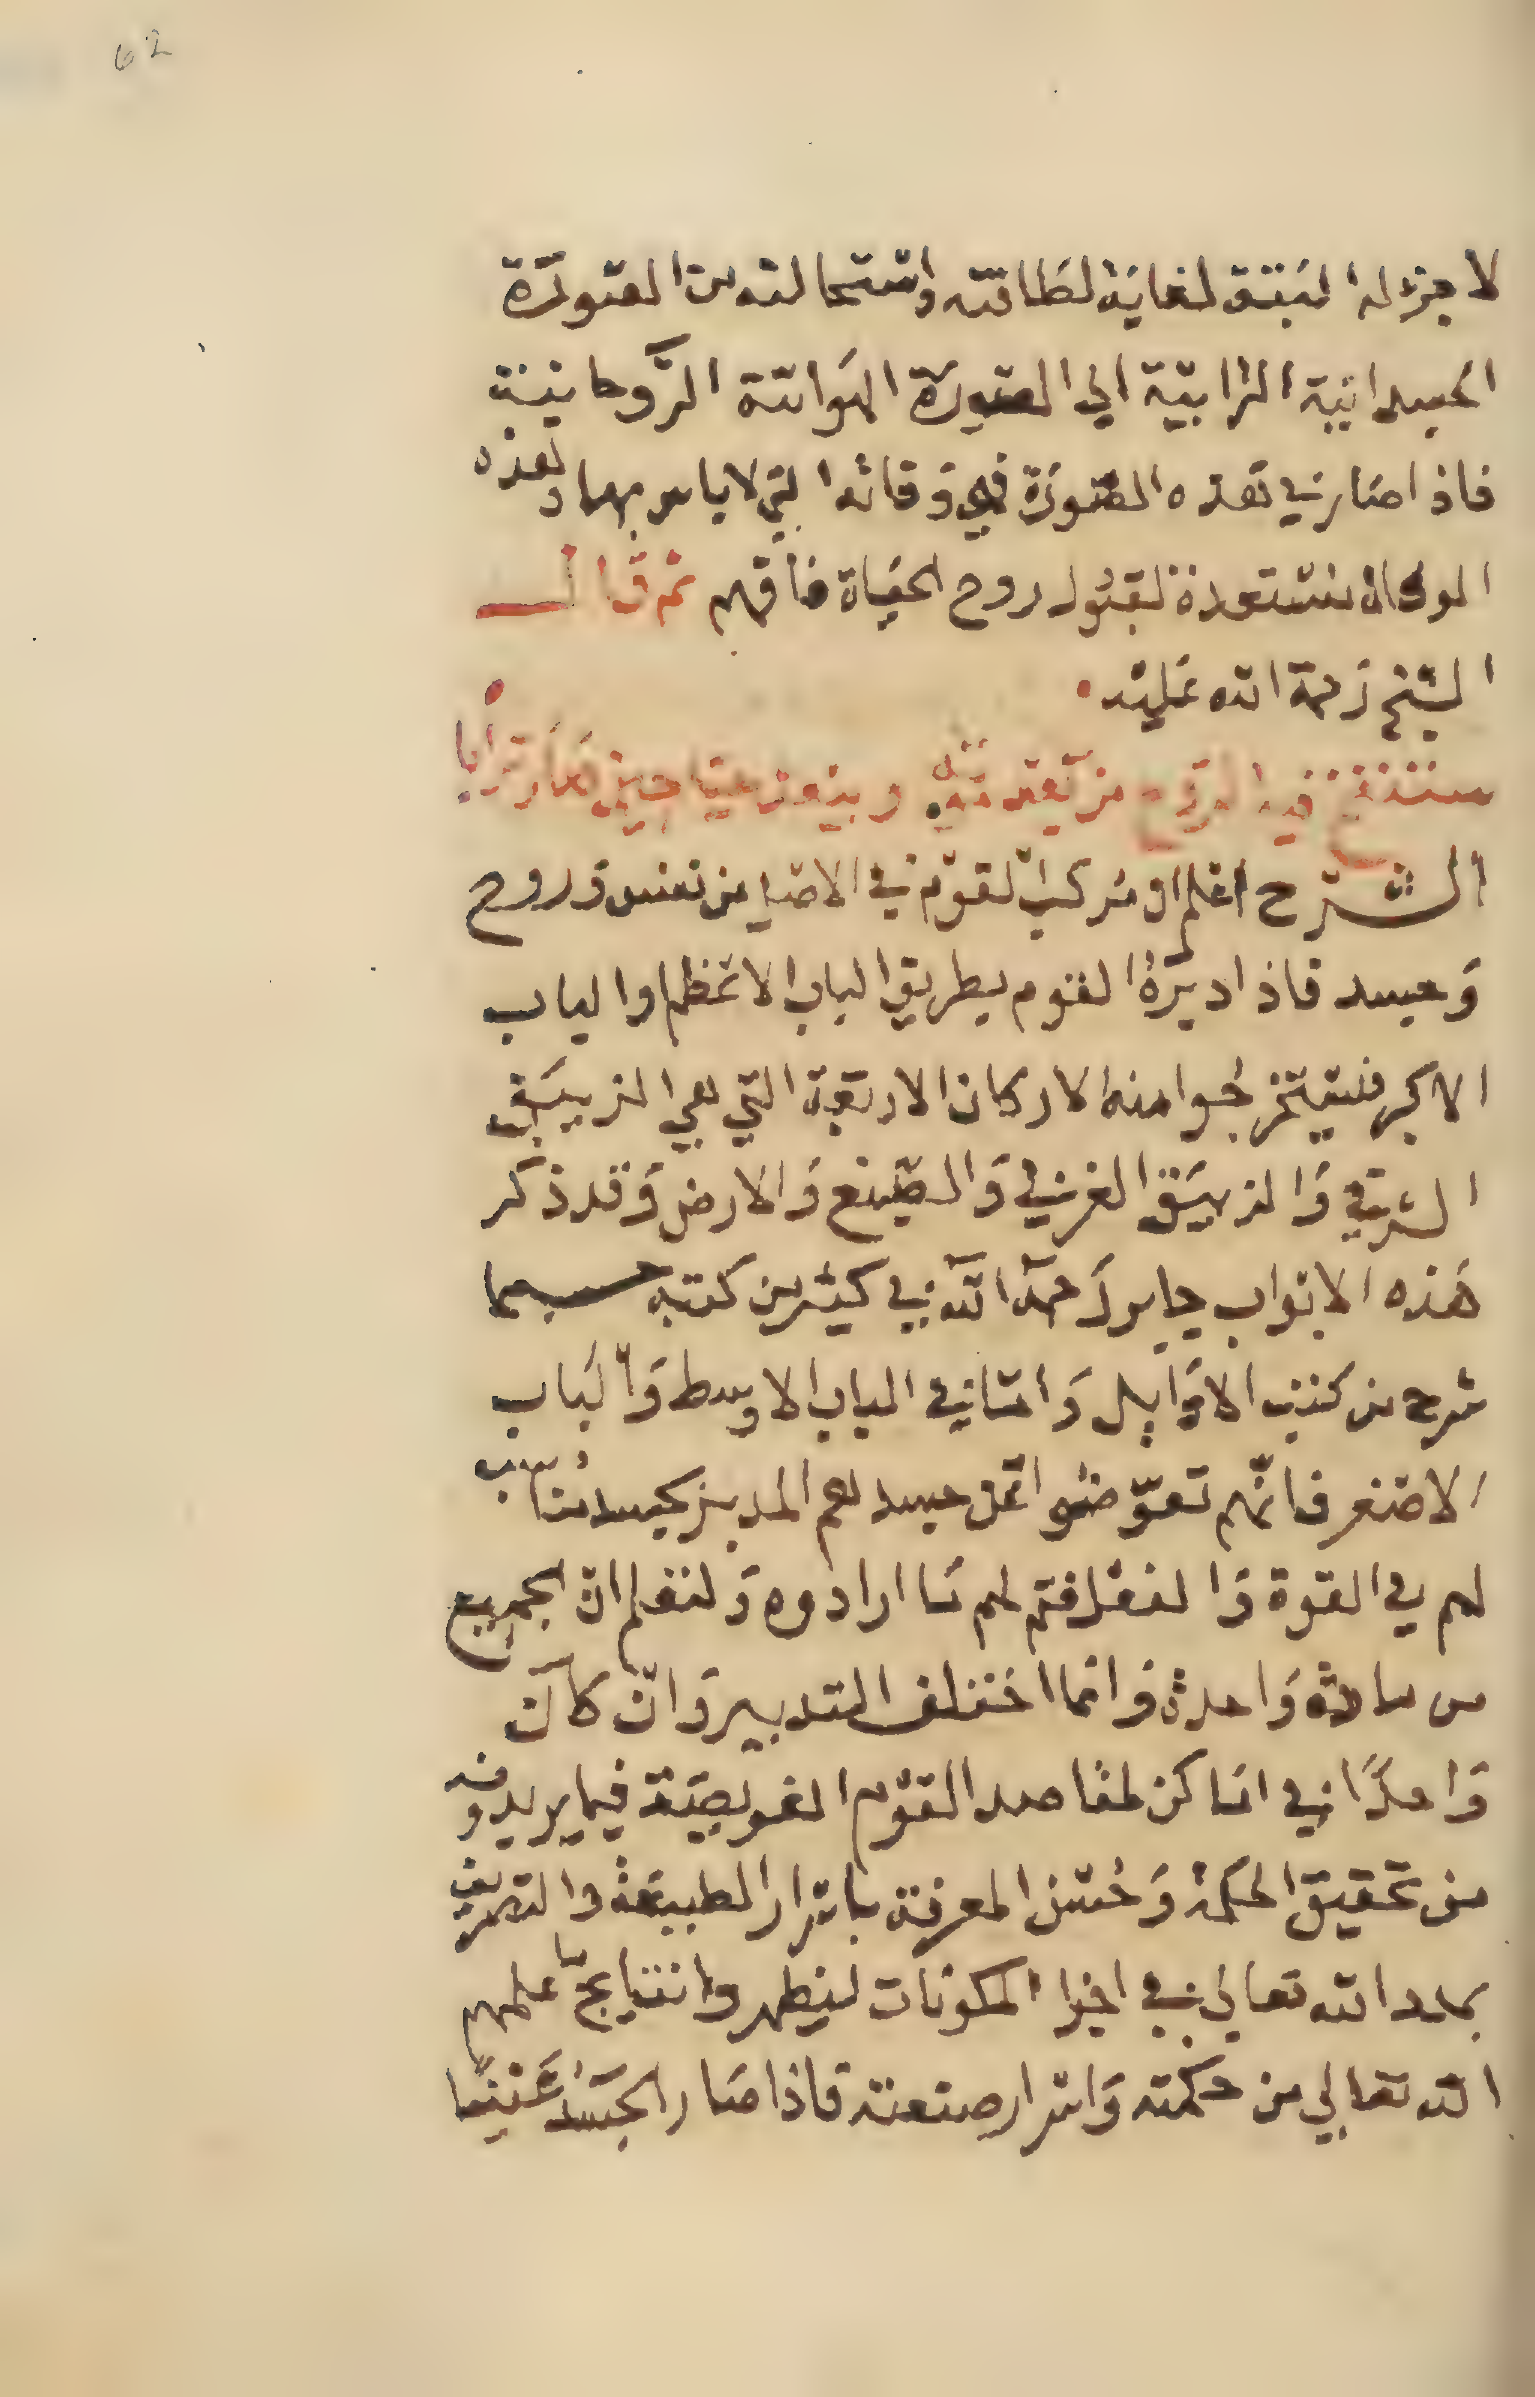 62
لا جزء له البتة لغاية لطافته واستحالته من الصورة
الجسدانية الترابية الي الصورة الهوائية الروحانية
فاذا صار في هذه الصورة فهي وقائه التي لا باس بها وهذه
المرحال مستعدة لقبول روح الحياة فافهم ثم قال
الشيخ رحمة الله عليه
سننفخ فيه الروح من بعد وبعد حين ترابا
الشرح اعلم ان مركب القوم في الاصل من نفس وروح
وجسد فاذا دبره القوم بطريق الباب الاعظم والباب
الاكبر فيستخرجوا منه الاركان الاربعة التي هي الزيبق
الشرقي والزيبق الغربي والصبغ والارض وقد ذكر
هذه الابواب جابر رحمه الله في كثير من كتبه حسبما
شرح من كتب الاوايل واما في الباب الاوسط والباب
الاصغر فانهم تعوضوا عن جسدهم المدبر بجسد مناسب
لهم في القوة والفعل فتم لهم ما ارادوه ولتعلم ان الجميع
من مادة واحدة وانما اختلف التدبير وان كان
واحدا في اماكن لمقاصد القوم الغويصة فيما يريدونه
من تحقيق الحكمة وحسن المعرفة باسرار الطبيعة والتصريف
بمدد الله تعالي في اجزا المكونات ليظهروا نتايج ما علمهم
الله تعالي من حكمته واسرار صنعته فاذا صار الجسد